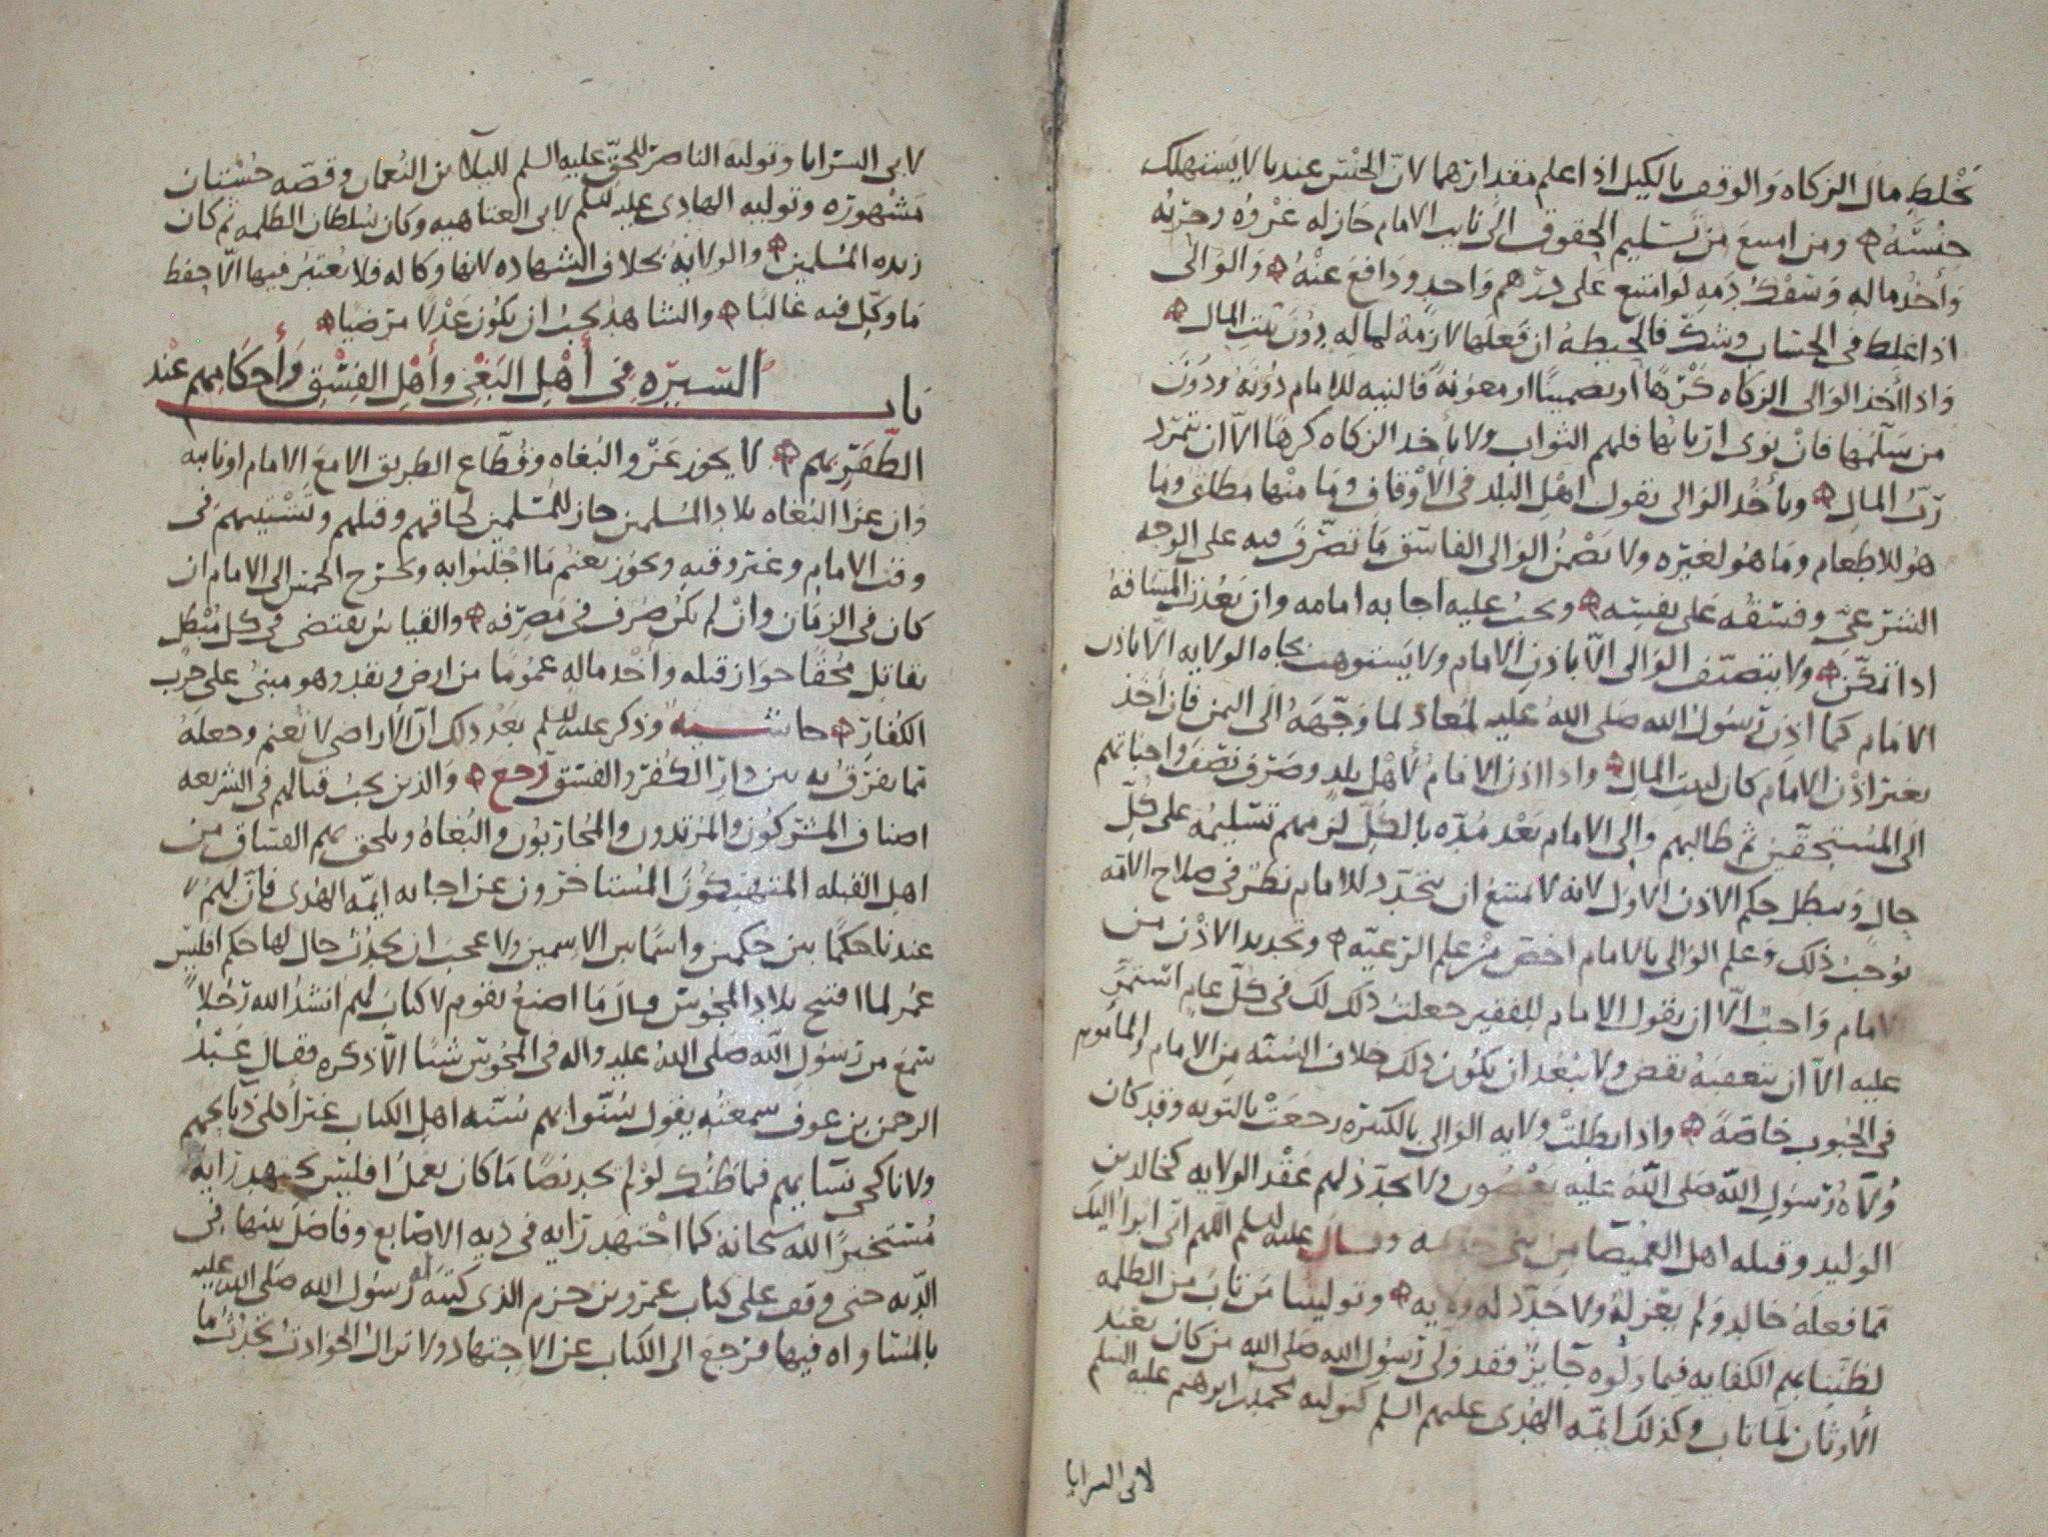 نخلط مال الزكاه والوقف بالكيل اذا علم مقدارهما لانّ الجنس عندنا لا يستهلك
جنسَهُ ومن امتنع من تسليم الحقوق الى نايب الامام جاز له غزوه وحربه
وأخذ ماله وسفك دمه لو امتنع على درهم واحد ودافع عنهُ والوالى
اذا غلط فى الحساب وشك فالحيطه ان فعلها لازمة لماله دون بيت المال
واذا أخذ الوالى الزكاه كرهًا او تضمينًا او معونة فالنيه للامام دونه ودون
من سلّمها فان نوى اربابها فلهم الثواب ولا يأخد الزكاه كرهًا الاّ ان يتمرّد
ربّ المال ويأخُد الوالى بقول اهل البلد فى الأوقاف وما منها مطلق وما
هو للاطعام وما هو لغيره ولا يضمنُ الوالى الفاسق ما تصرّف فيه على الوجه
الشرعىّ وفسقه على نفسه ويجب عليه اجابه امامه وان بعُدت المسافهُ
اذا تمكّن ولا يتصرّف الوالى الاّ باذن الامام ولا يستوهب بجاه الولايه الاّ باذن
الامام كما اذن رسول الله صلى الله عليه لمُعاذ لما وجّهَهُ الى اليمن فان أخذ
بغير اذن الامام كان لبيت المال واذا اذن الامامُ لأهل بلد وصرف نصف واجباتهم
الى المستحقين ثم طالبهم والى الامام بعد مُدّه بالكلّ لزمهم تسليمه على كلّ
حال وبطل حكم الاذن الاول لانه لا يمتنع ان يتجدّد للامام نظر فى صلاح الامّه
يوجب ذلك وعلم الوالى بالامام اخصّ من علم الرعيّه وتجديد الاذن من
الامام واجب الاّ ان يقول الامام للفقير جعلت ذلك لك فى كلّ عام استمرّ
عليه الاّ ان يتعقبهُ نقض ولا يبعُد ان يكون ذلك خلاف السنّه من الامام والمأموم
فى الحبوب خاصّةً واذا بطلتْ ولايه الوالى بالكبيره رجعتْ بالتوبه وقد كان
وُلاّة رسول الله صلى اللهُ عليه يعصون ولا يجدّد لهم عقد الولايه كخالد بن
الوليد وقتله اهل الغميصا من بنى جذيمه وقال عليه السلم اللهم انى ابرأ اليك
ممّا فعله خالد ولم يعزلهُ ولا جدّد له ولايه وتوليتنا من تاب من الظلمه
لظنّنا بهم الكفايه فيما ولوه جايز فقد ولّى رسول الله صلى الله من كان يعبد
الأوثان لما تاب وكذلك ايمّه الهدى عليهم السلم كتوليه محمد بن ابرهيم عليه السلم
لابى السرايا
لابى السرايا وتوليه الناصر للحق عليه السلم لليلا بن النعمان وقصّه حسّتان
مشهوره وتوليه الهادى عليه السلم لابى العتاهيه وكان سُلطان الظلمه ثم كان
زبده المسلمين والولايه بخلاف الشهاده لانها وكاله فلا يُعتبر فيها الاّ حفظ
ما وكّل فيه غالبًا والشاهد يجب ان يكون عدلا مرضيّا
باب السيره فى أهل البغى وأهل الفسق وأحكامهم عند
الظفر بهم لا يجوز غزو البُغاه وقطّاع الطريق الا مع الامام او نايبه
وان غزا البُغاه بلاد المسلمين جاز للمسلمين لحاقهم وقتلهم وتشتيتهم فى
وقت الامام وغير وقته ويجوز يغنم ما اجلبوا به ويخرج الخمس الى الامام ان
كان فى الزمان وانْ لم يكن صُرف فى مصرفه والقياس يقتضى فى كل مبطل
يقاتل مُحقّا جواز قتله وأخْد ماله عمومًا من ارض ونقد وهو مبنىّ على حرب
الكفار حاشيه وذكر عليه السلم بعد ذلك انّ الأراضى لا تُغنم وجعله
ممّا يفرّق به بين دار الكفر والفسق رجع والذين يجب قتالهم فى الشريعه
اصناف المشركون والمرتدون والمُحاربُون والبُغاهُ ويلحق بهم الفساق من
اهل القبله المتهتكون المستأخرون عن اجابه ايمّه الهُدى فانّ لهم
عندنا حكمًا بين حكمين واسمًا بين الاسمين ولا عجب ان يحدُث حال لها حكم افليس
عمر لما افتتح بلاد المجُوس قال ما اصنعُ بقوم لا كتاب لهم انشدُ الله رجُلاً
سمع من رسول الله صلى اللهُ عليه واله فى المجُوس شيًا الاّ ذكره فقال عبْدُ
الرحمن بن عوف سمعتُه يقول سُنّوا بهم سُنّه اهل الكتاب غير أكلى ذبايحهم
ولا ناكحى نسايهم فما ظنّك لو لم يجد نصًا ما كان يعملُ افليس يجتهد رايه
مُستخيرًا الله سبحانه كما اجتهد رايه فى ديه الاصابع وفاضل بينها فى
الدّيه حتى وقف على كتاب عمرو بن حزم الذى كتبه له رسول الله صلى الله عليه
بالمساواه فيها فرجع الى الكتاب عن الاجتهاد ولا تزال الحوادث تحدُث ما